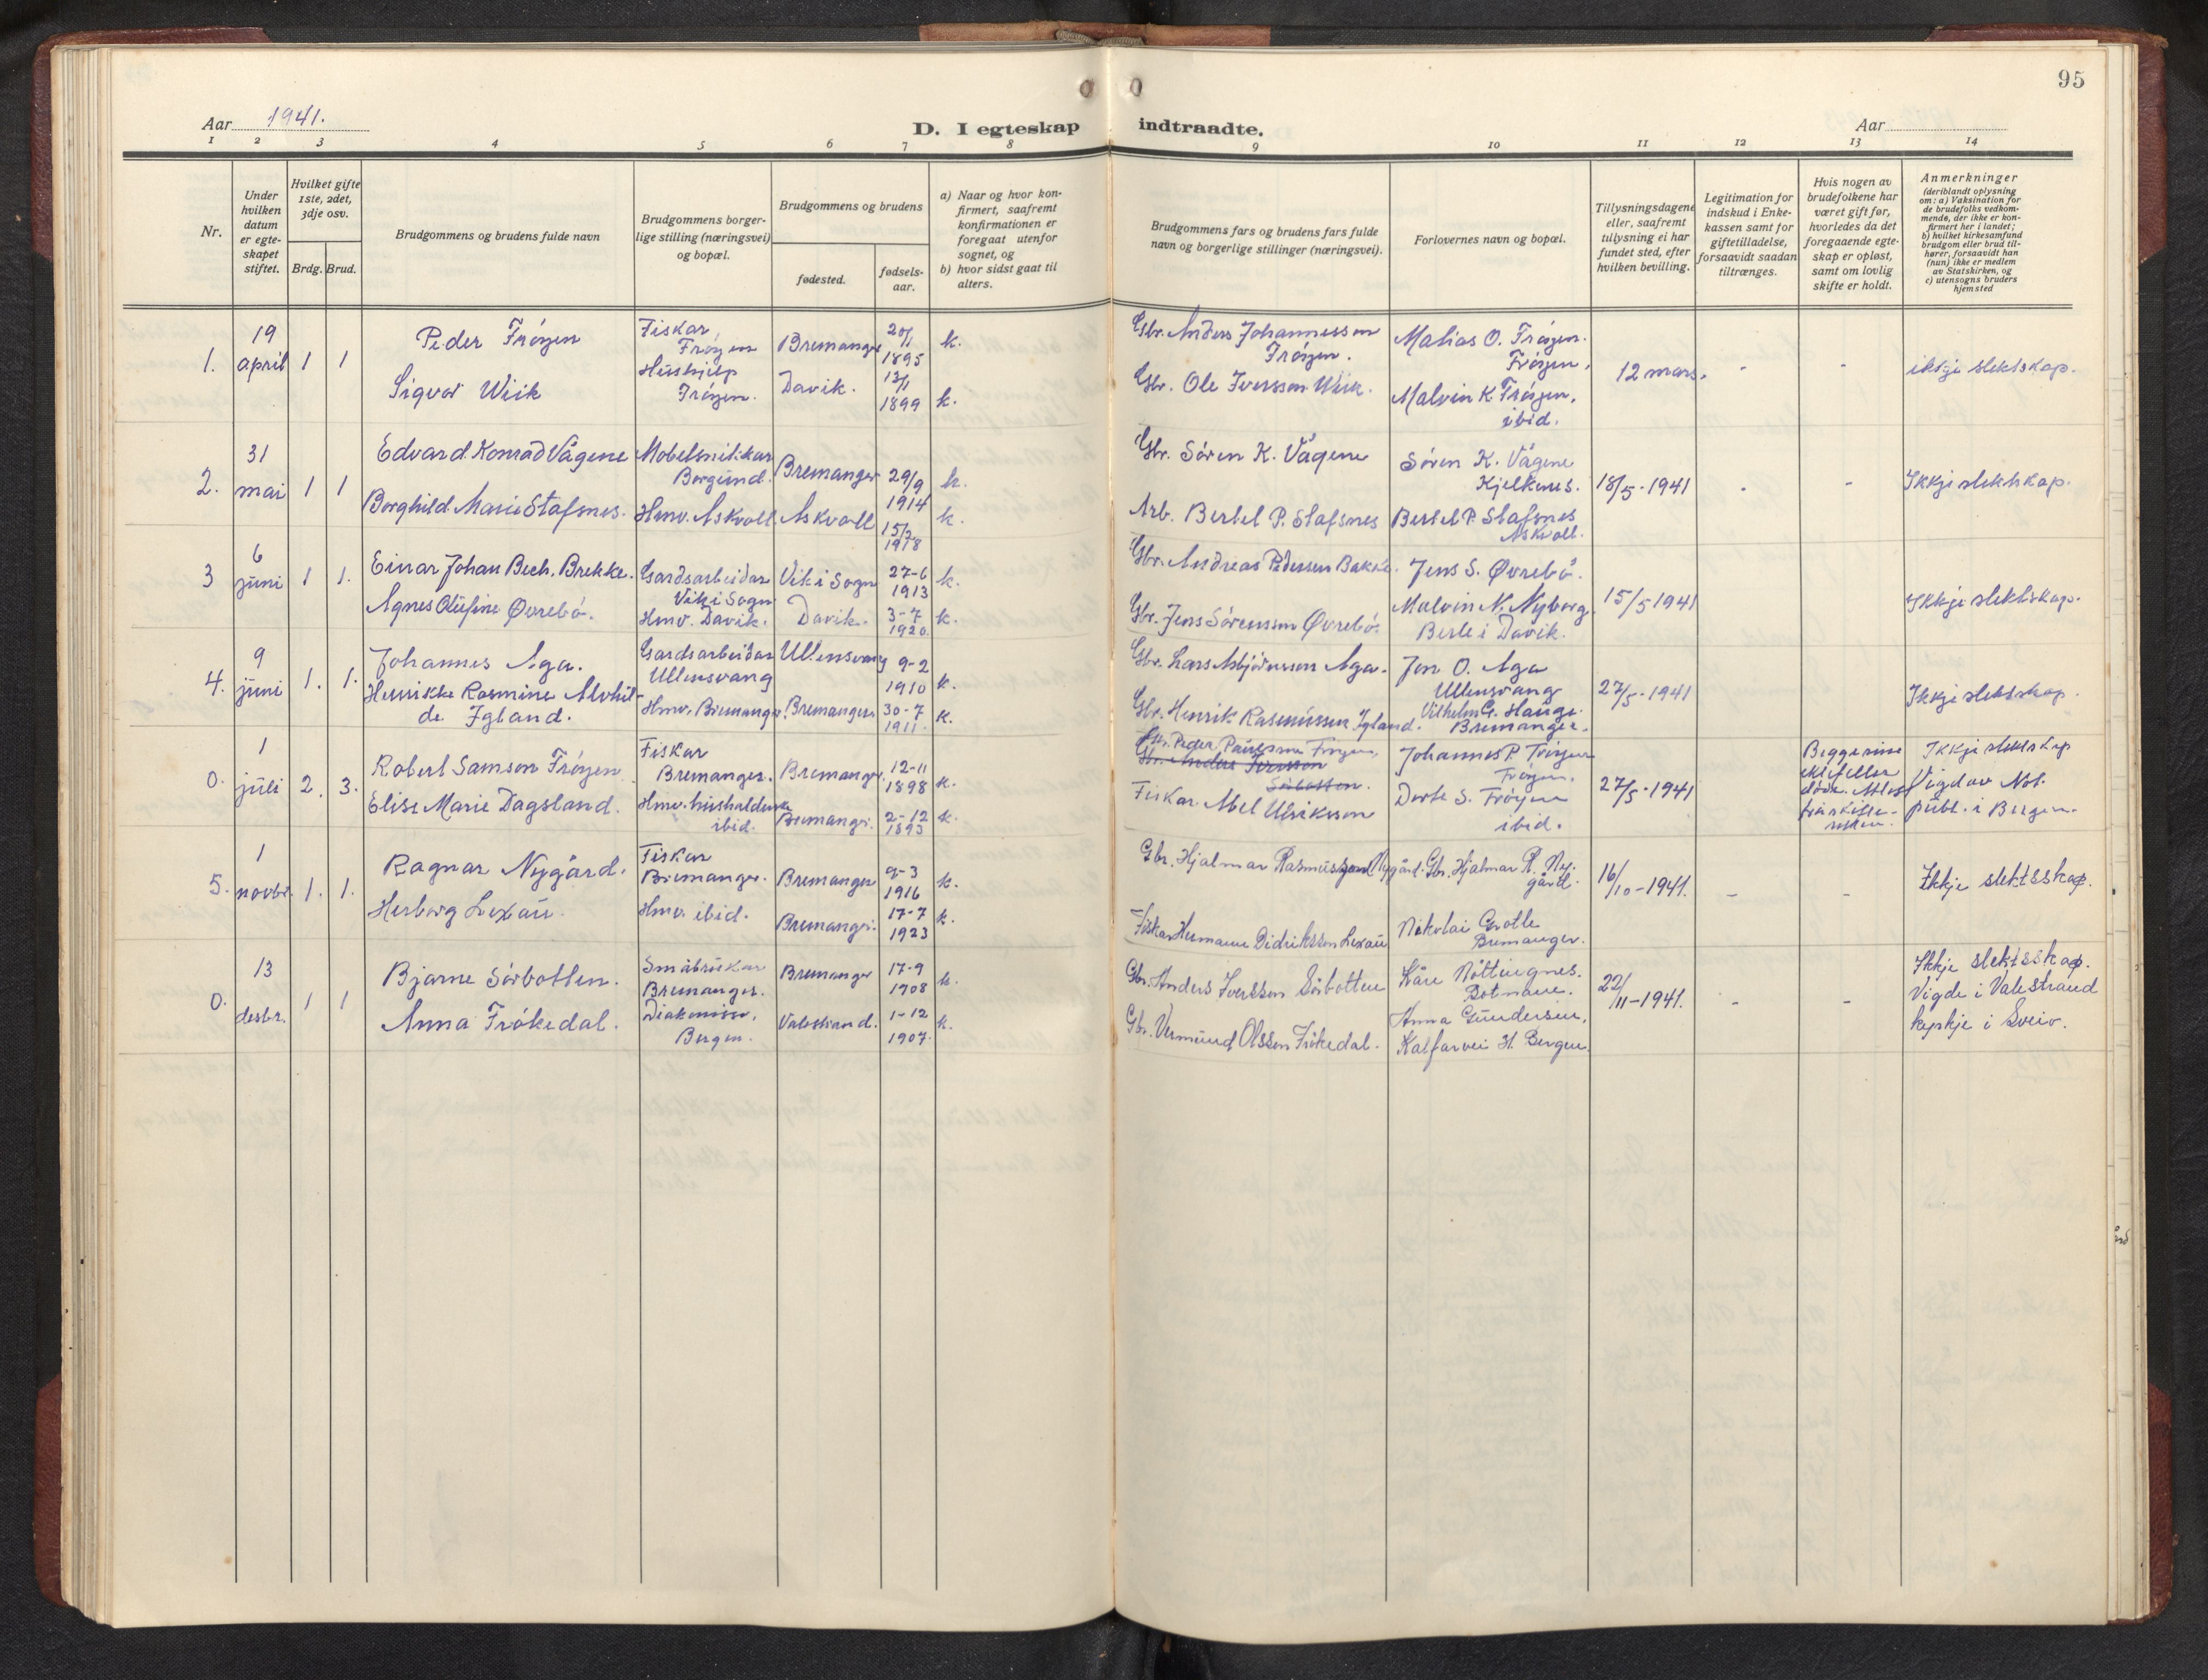 95
Aar 1941.
D. I egteskap indtraadte.
Aar
1 2 3 4 5 6 7 8 9 10 11 12 13 14
Nr.
Under
hvilken
datum
er egte-
skapet
stiftet.
Hvilket gifte
1ste, 2det,
3dje osv.
Brdg. Brud.
Brudgommens og brudens fulde navn
Brudgommens borger-
lige stilling (næringsvei)
og bopæl.
Brudgommens og brudens
fødested.
fødsels-
aar.
a) Naar og hvor kon-
firmert, saafremt
konfirmationen er
foregaat utenfor
sognet, og
b) hvor sidst gaat til
alters.
Brudgommens fars og brudens fars fulde
navn og borgerlige stillinger (næringsvei).
Forlovernes navn og bopæl.
Tillysningsdagene
eller, saafremt
tillysning ei har
fundet sted, efter
hvilken bevilling.
Legitimation for
indskud i Enke-
kassen samt for
giftetilladelse,
forsaavidt saadan
tiltrænges.
Hvis nogen av
brudefolkene har
været gift før,
hvorledes da det
foregaaende egte-
skap er opløst,
samt om lovlig
skifte er holdt.
Anmerkninger
(deriblandt oplysning
om: a) Vaksination for
de brudefolks vedkom-
mende, der ikke er kon-
firmert her i landet;
b) hvilket kirkesamfund
brudgom eller brud til-
hører, forsaavidt han
(hun) ikke er medlem
av Statskirken, og
c) utensogns bruders
hjemsted
1.
19
april
1 1
Peder Frøyen
Sigvor Wiik
Fiskar
Frøyen
Hushjelp
Frøyen.
Bremanger
Davik.
20/1
1895
12/1
1899
k.
k.
Gbr. Anders Johannesson
Frøyen.
Gbr. Ole Iversson Wiik.
Matias O. Frøyen.
Frøyen.
Malvin K Frøyen.
ibid.
12 mars.
-
-
ikkje slektskap.
2.
31
mai
1 1
Edvard Konrad Vågene
Borghild Marie Stafsnes.
Møbelsnikkar
Borgund.
Hmv. Askvoll
Bremanger
Askvoll
29/9
1914
15/2
1918
k.
k.
Gbr. Søren K. Vågene
Arb. Bertel P. Stafsnes
Søren K. Vågene
Kjelkenes.
Bertel P. Stafsnes
Askvoll.
18/5-1941
-
-
Ikkje slektskap.
3
6
juni
1 1.
Einar Johan Bech. Brekke.
Agnes Olufine Øvrebø.
Gardsarbeidar
Vik i Sogn
Hmv. Davik.
Vik i Sogn
Davik.
27-6
1913
3-7
1920.
k.
k.
Gbr. Andreas Pedersen
Gbr. Jens Sørensson Øvrebø.
Jens S. Øvrebø.
Malvin N. Nyborg.
Berle i Davik.
15/5 1941
Ikkje slektskap.
4.
9
juni
1. 1.
Johannes Aga.
Henrikke Rasmine Alvhil-
de Igland.
Gardsarbeidar
Ullensvang
Hmv. Bremanger.
Ullensvang
Bremanger
9-2
1910
30-7
1911.
k.
k.
Gbr. Lars Asbjørnsson Aga.
Gbr. Henrik Rasmussen Igland.
Jon O. Aga
Ullensvang
Vilhelm G. Hauge.
Bremanger.
27/5-1941
Ikkje slektskap.
0.
1
juli
2. 3.
Robert Samson Frøyen
Elise Marie Dagsland.
Fiskar
Bremanger.
Hmv. hushalderske
ibid.
Bremanger.
Bremanger.
12-11
1898
2-12
1893
k.
k.
Peder Frøyen
Gbr. Anders Iversson
Sørbotten.
Fiskar. Abel Ulriksson
Johannes P. Frøyen
Frøyen.
Dorte S. Frøyen
ibid.
27/5-1941
Begge sine
ektefeller
døde. Attest
frå skifte-
retten.
Ikkje slektskap
Vigd av Not.
publ. i Bergen.
5.
1
novbr.
1. 1.
Ragnar Nygård.
Herborg Lexau.
Fiskar
Bremanger.
Hmv. ibid.
Bremanger
Bremanger.
9-3
1916
17-7
1923
k.
k.
Gbr. Hjalmar Rasmusson Nygård.
Fiskar Hermann Didriksson Lexau
Gbr. Hjalmar R. Ny-
gård.
Nikolai Grotle
Bremanger.
16/10-1941.
-
-
Ikkje slektsskap.
0.
13
desbr.
1 1
Bjarne Sørbotten.
Anna Frøkedal.
Småbrukar
Bremanger.
Diakonisse,
Bergen.
Bremanger
Valestrand.
17-9
1908
1-12
1907.
k.
k.
Gbr. Anders Iversson Sørbotten
Gbr. Vermund Olsson Frøkedal.
Kåre Nøttingnes.
Botnane.
Anna Gundersen,
Kalfarvei 31. Bergen.
22/11-1941.
-
-
Ikkje slektsskap.
Vigde i Valestrand
kyrkje i Sveio.